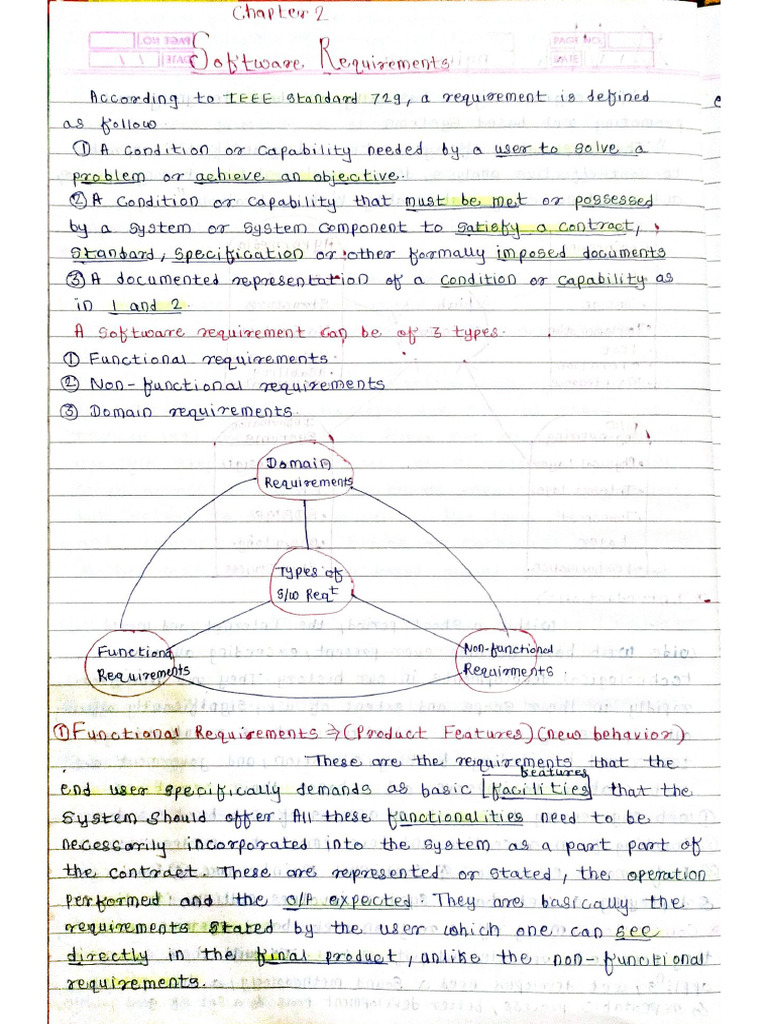 Chapter 2
PAGE NO.
DATE
Software Requirements
According to IEEE standard 729, a requirement is defined
as follow
① A condition or capability needed by a user to solve a
problem or achieve an objective.
② A condition or capability that must be met or possessed
by a system or system component to satisfy a contract,
standard, specification or other formally imposed documents
③ A documented representation of a condition or capability as
in 1 and 2.
A software requirement can be of 3 types.
① Functional requirements.
② Non-functional requirements
③ Domain requirements.
Domain
Requirements
Types of
S/W Reqt
Functional
Requirements
Non-functional
Requirments
① Functional Requirements ⇒ (Product Features) (new behavior)
These are the requirements that the
features
end user specifically demands as basic facilities that the
system should offer. All these functionalities need to be
necessarily incorporated into the system as a part part of
the contract. These are represented or stated, the operation
performed and the O/P expected. They are basically the
requirements stated by the user which one can see
directly in the final product, unlike the non-functional
requirements.